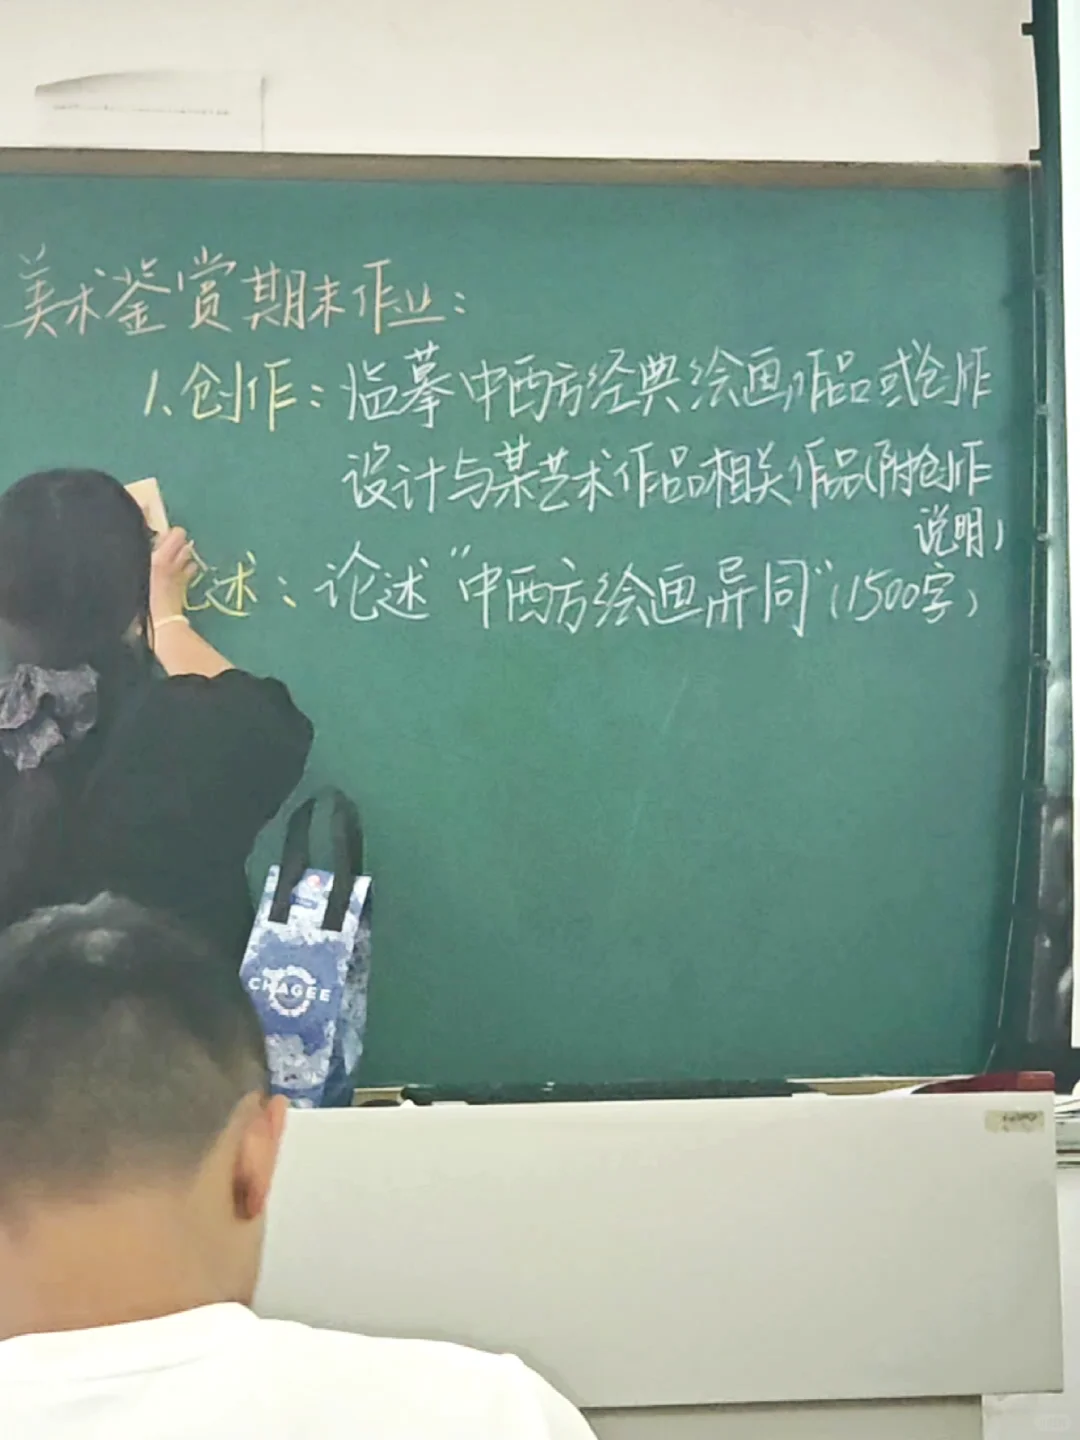 美术鉴赏期末作业：
1、创作：临摹中西方经典绘画作品或创作
设计与某艺术作品相关作品（附创作
说明）
论述：论述“中西方绘画异同”（1500字）
CHAGEE